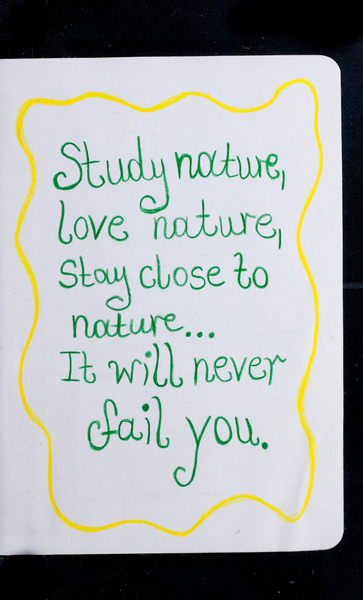 Study nature,
love nature,
Stay close to
nature...
It will never
fail you.